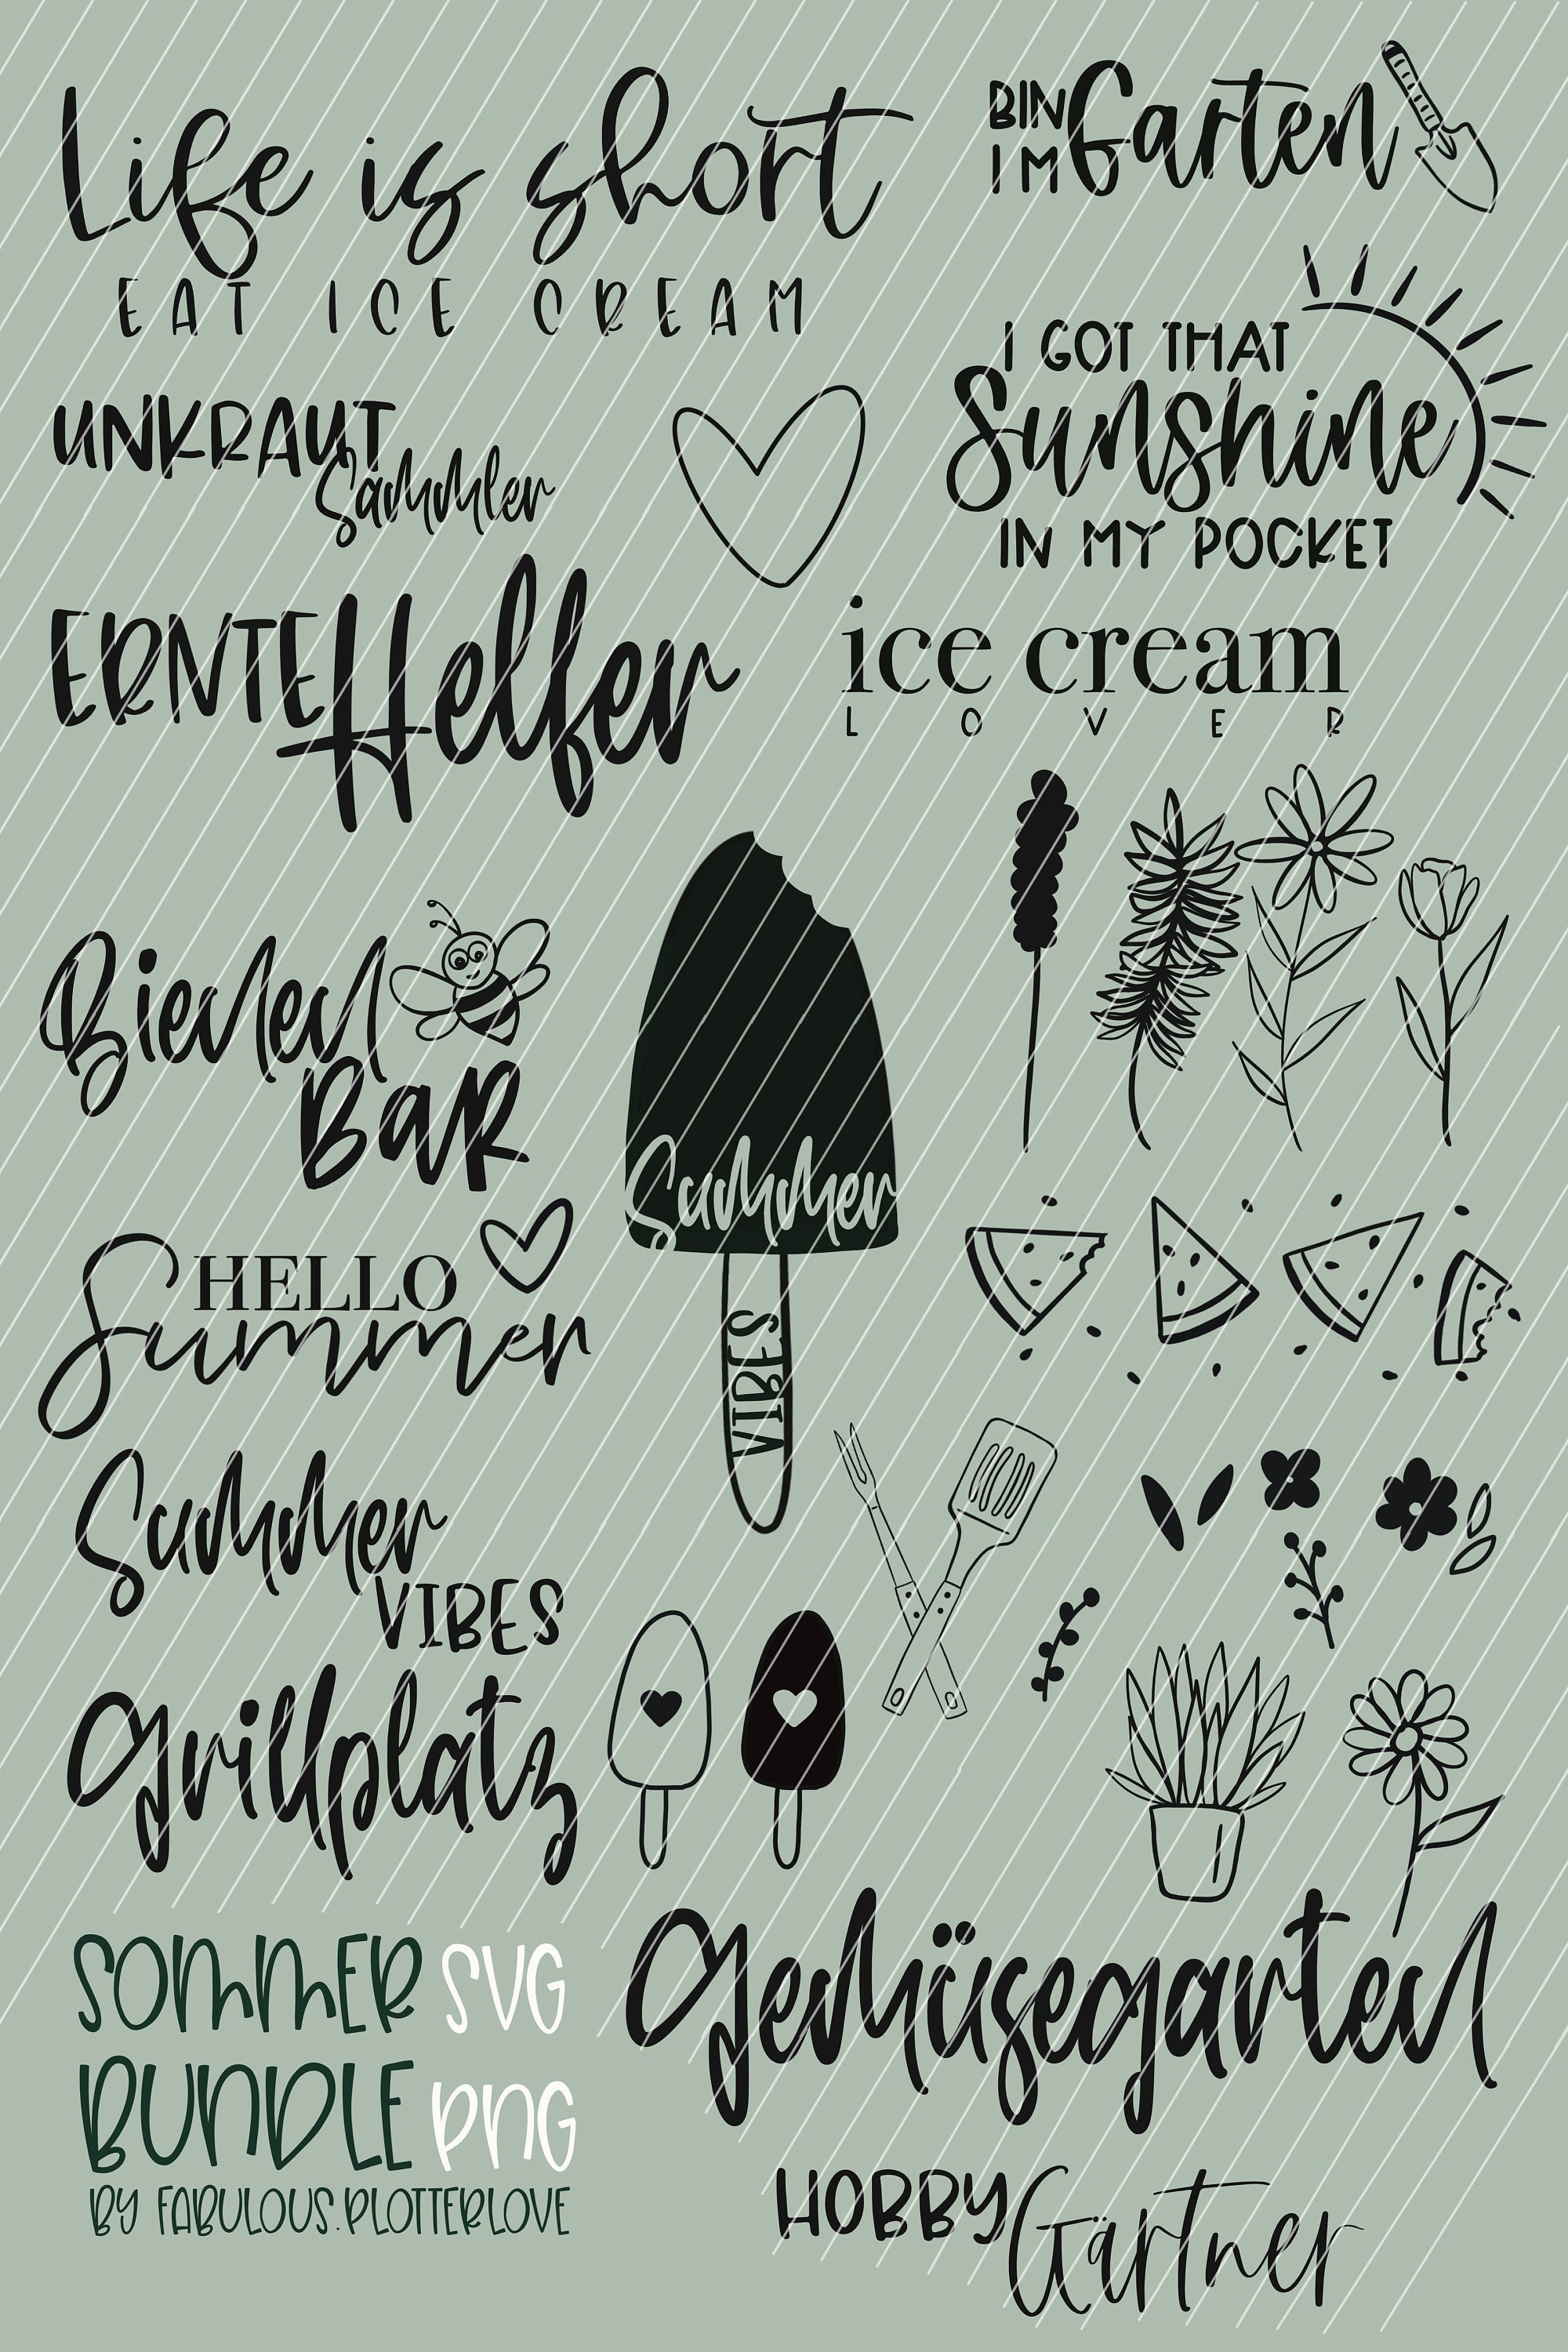 Life is short
EAT ICE CREAM
BIN IM Garten
I GOT THAT
Sunshine
IN MY POCKET
UNKRAUT
Sammler
ERNTE Helfer
ice cream
LOVER
Bienen
BAR
Summer
VIBES
HELLO
Summer
Summer
VIBES
Grillplatz
Gemüsegarten
SOMMER SVG
BUNDLE PNG
BY FABULOUS.PLOTTERLOVE
HOBBY Gärtner